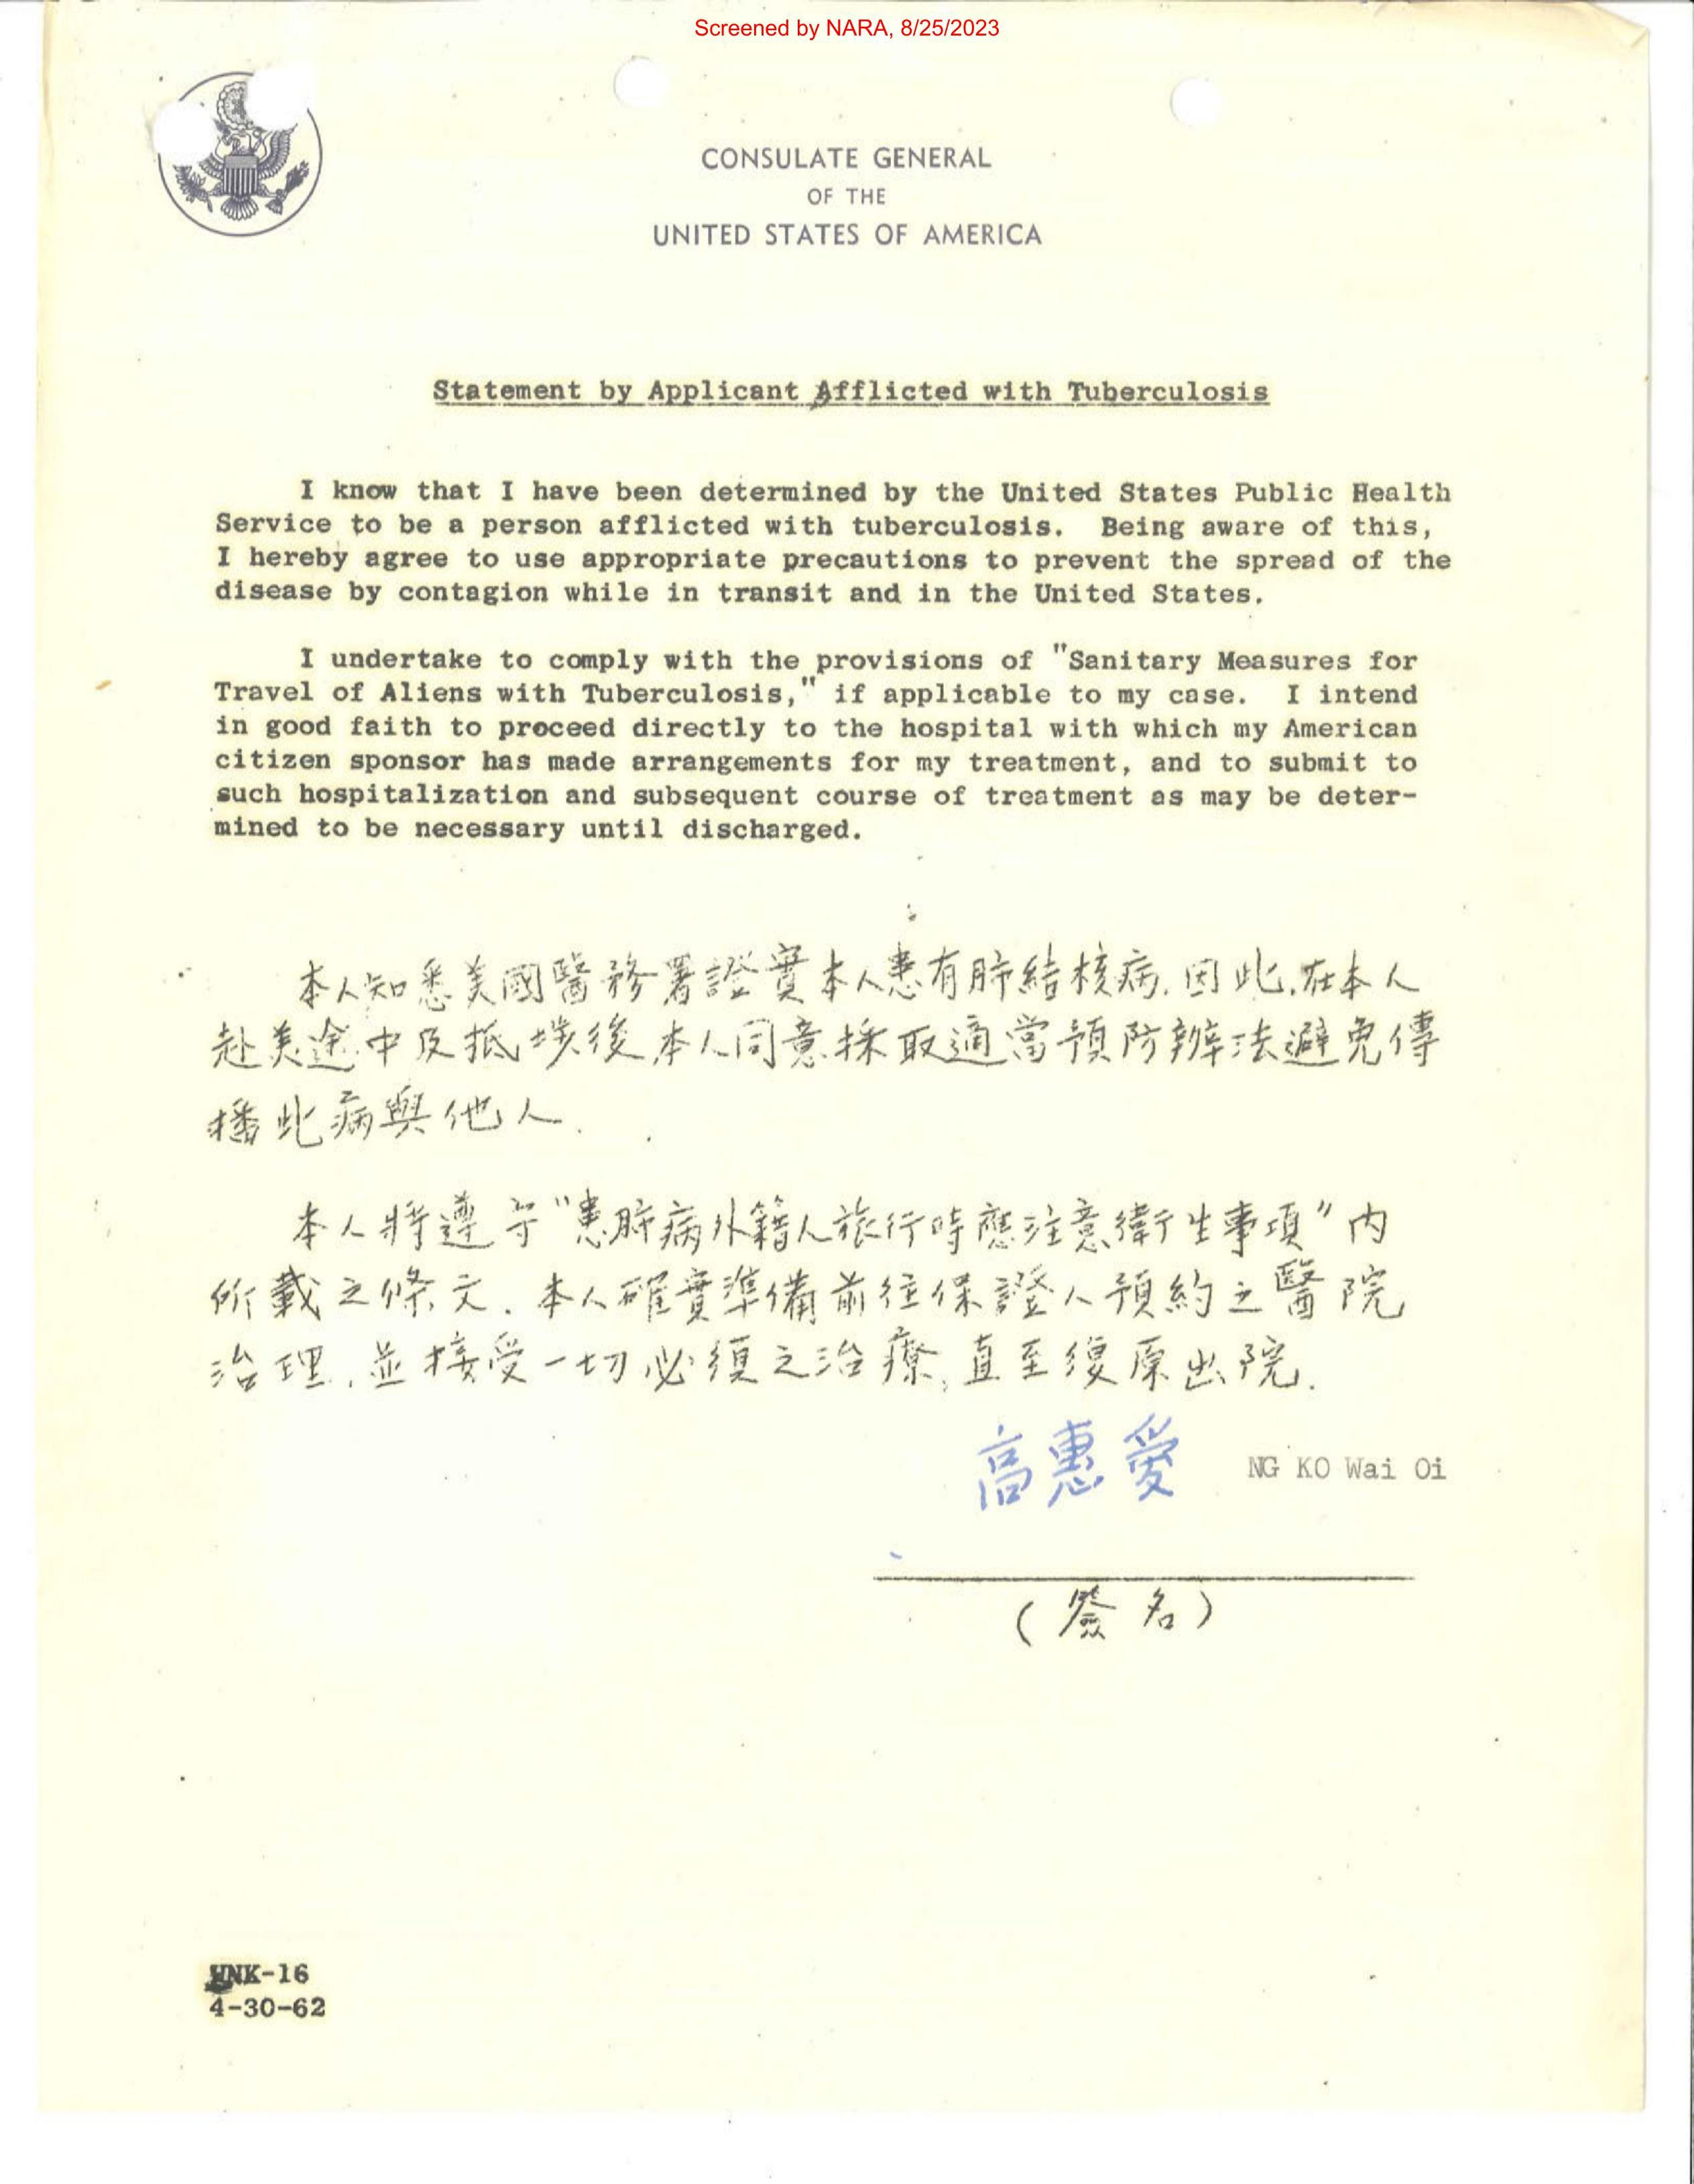 Screened by NARA, 8/25/2023
CONSULATE GENERAL
OF THE
UNITED STATES OF AMERICA
Statement by Applicant Afflicted with Tuberculosis
I know that I have been determined by the United States Public Health
Service to be a person afflicted with tuberculosis. Being aware of this,
I hereby agree to use appropriate precautions to prevent the spread of the
disease by contagion while in transit and in the United States.
I undertake to comply with the provisions of "Sanitary Measures for
Travel of Aliens with Tuberculosis," if applicable to my case. I intend
in good faith to proceed directly to the hospital with which my American
citizen sponsor has made arrangements for my treatment, and to submit to
such hospitalization and subsequent course of treatment as may be deter-
mined to be necessary until discharged.
本人知悉美國醫務署證實本人患有肺結核病.因此.在本人
赴美途中及抵埗後本人同意採取適當預防辦法避免傳
播此病與他人.
本人將遵守"患肺病外籍人旅行時應注意衛生事項"內
所載之條文.本人確實準備前往保證人預約之醫院
治理.並接受一切必須之治療,直至復原出院.
高惠愛 NG KO Wai Oi
(簽名)
NK-16
4-30-62